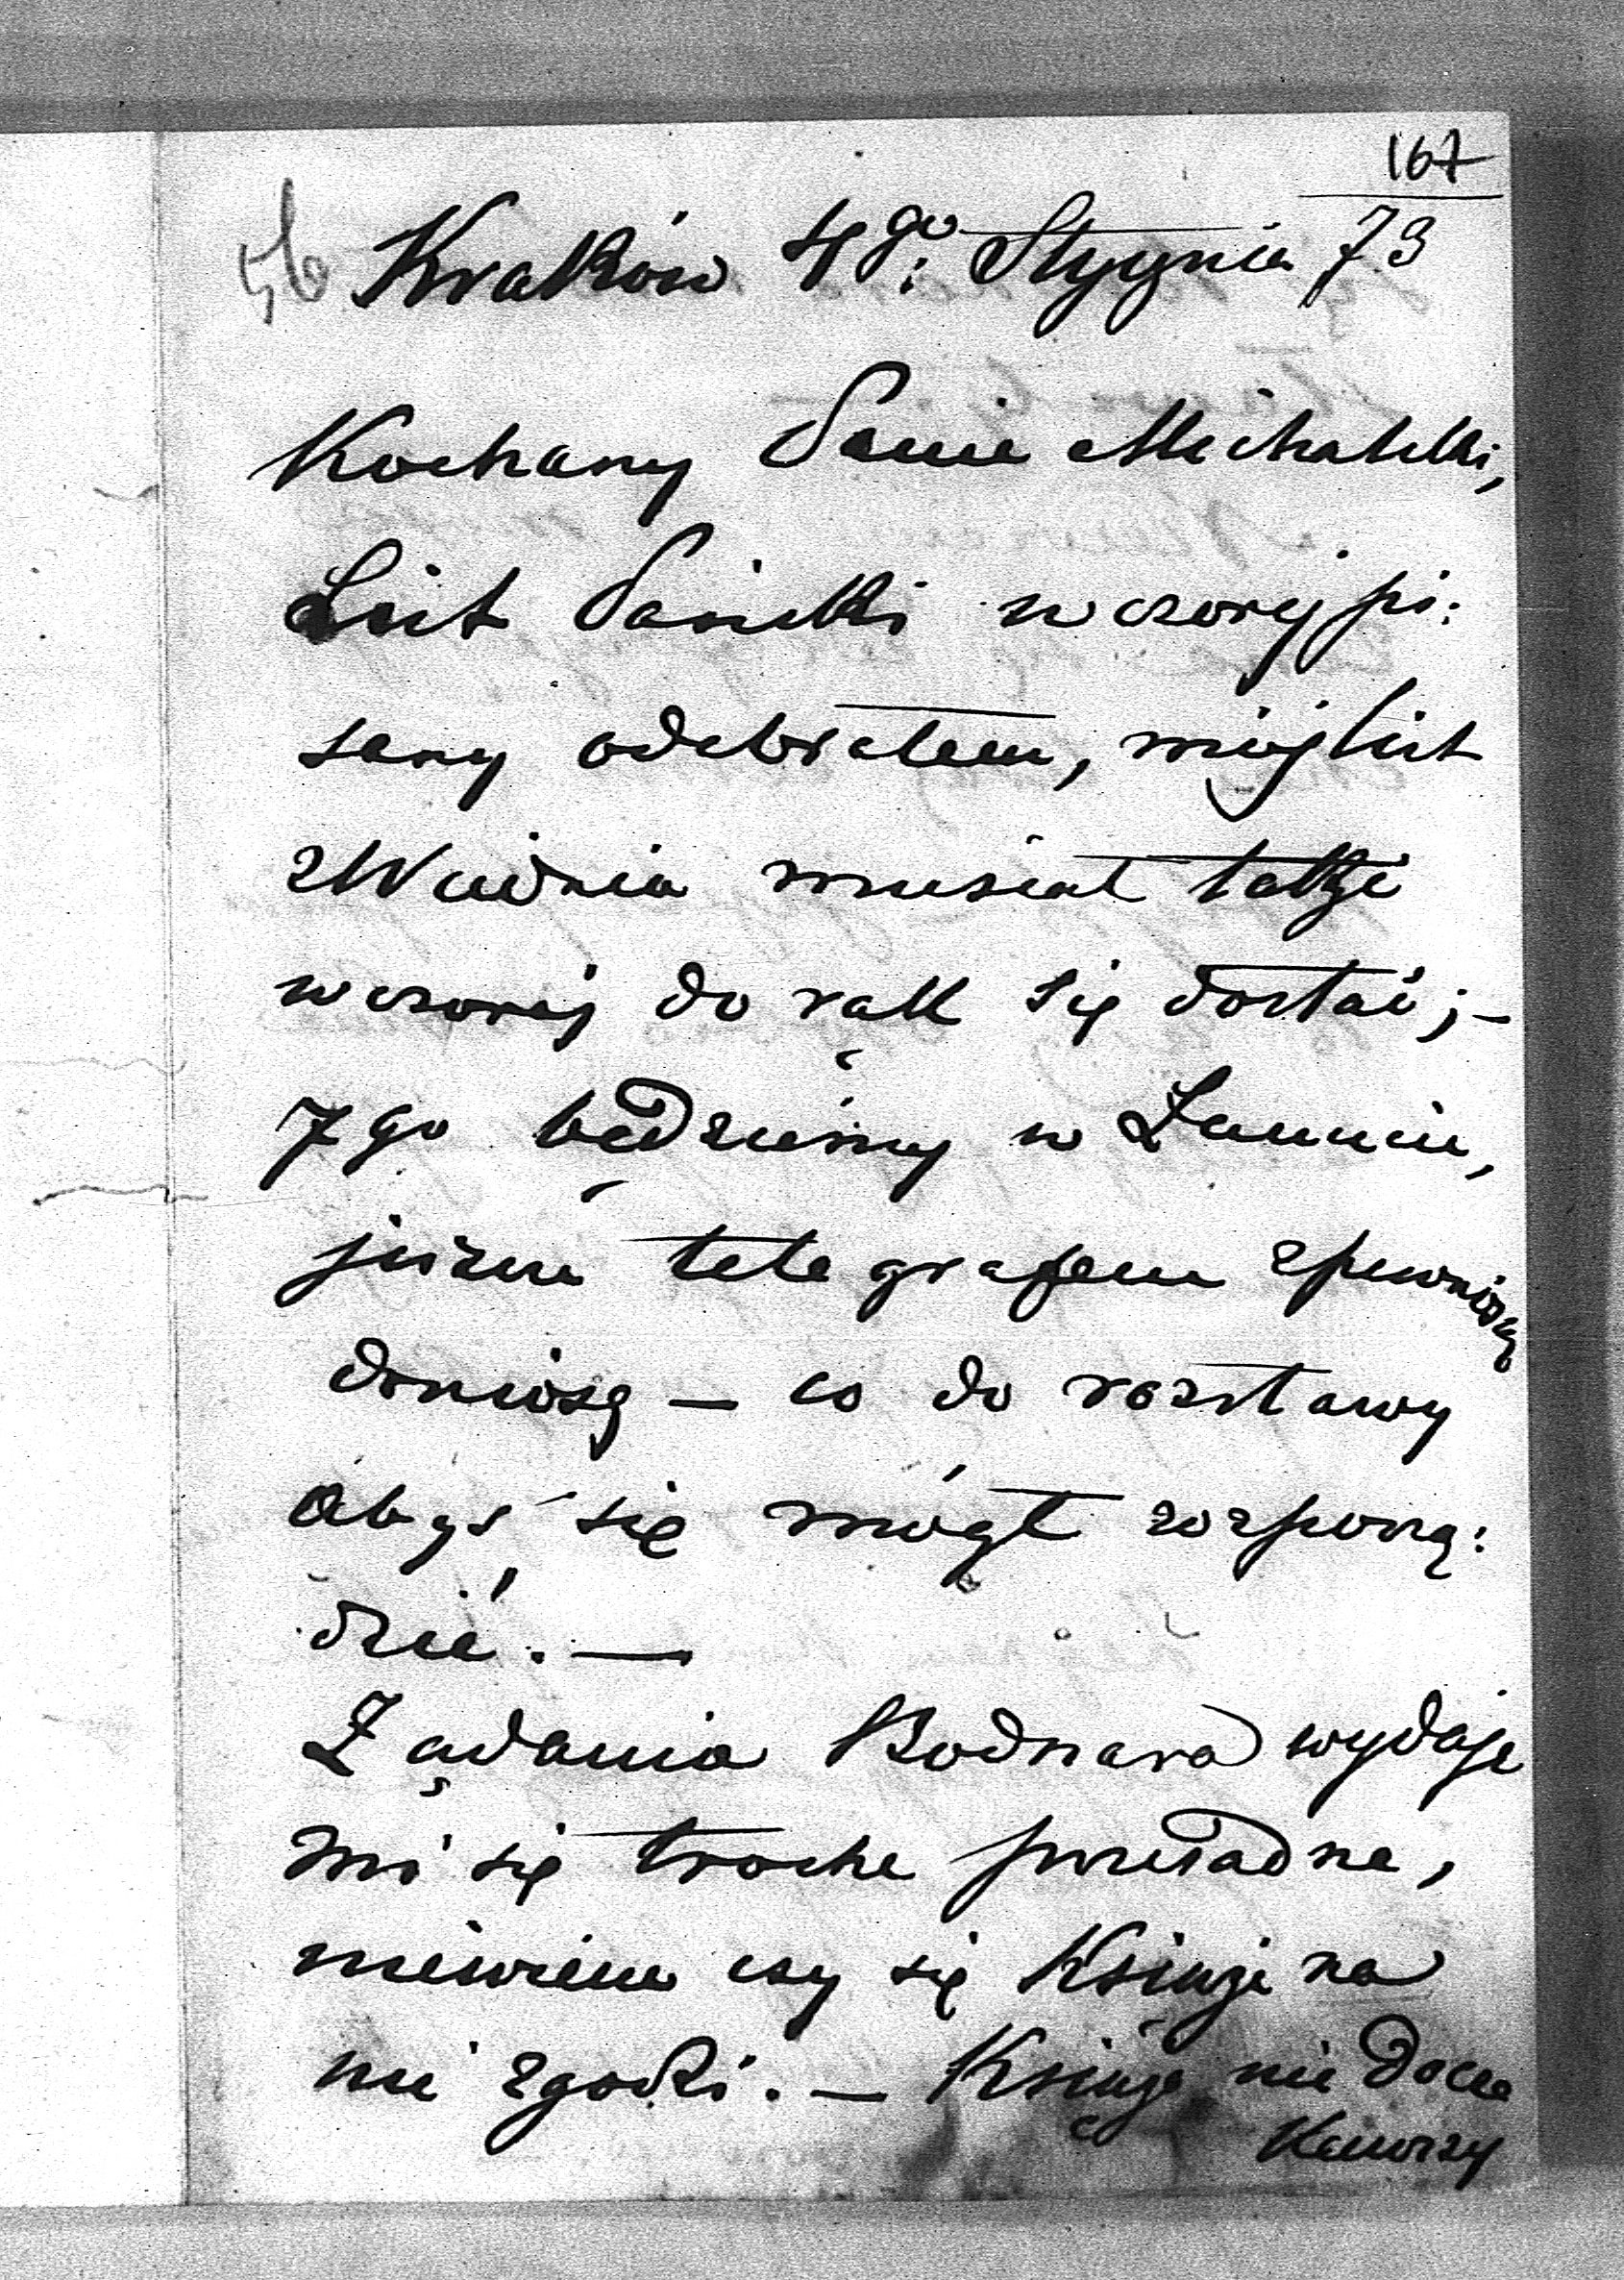 167
56 Kraków 4go: Stycznia 73
Kochany Panie Michalski,
List Pański wczoraj pi:
sany odebrałem, mój list
z Wiednia musiał także
wczoraj do rąk się dostać; —
7go będziemy w Łańcucie,
jeszcze telegrafem z pewnością
doniosę — co do rozstawy
abyś się mógł rozporzą:
dzić. —
Żądania Bodnara wydaje
mi się trochę przesadne,
niewiem czy się Książe na
nie zgodzi. — Książe nie